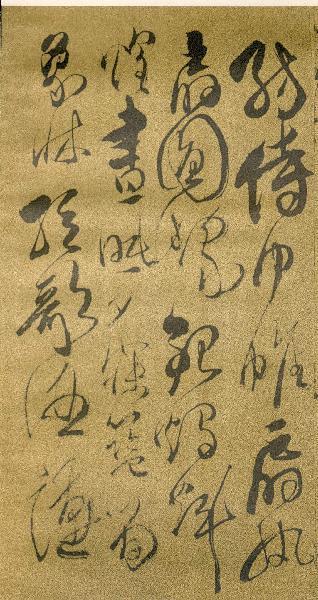 紡侍巾帷房紈
扇圓潔銀燭煒
煌晝眠夕寐籃笋
象牀弦歌酒讌